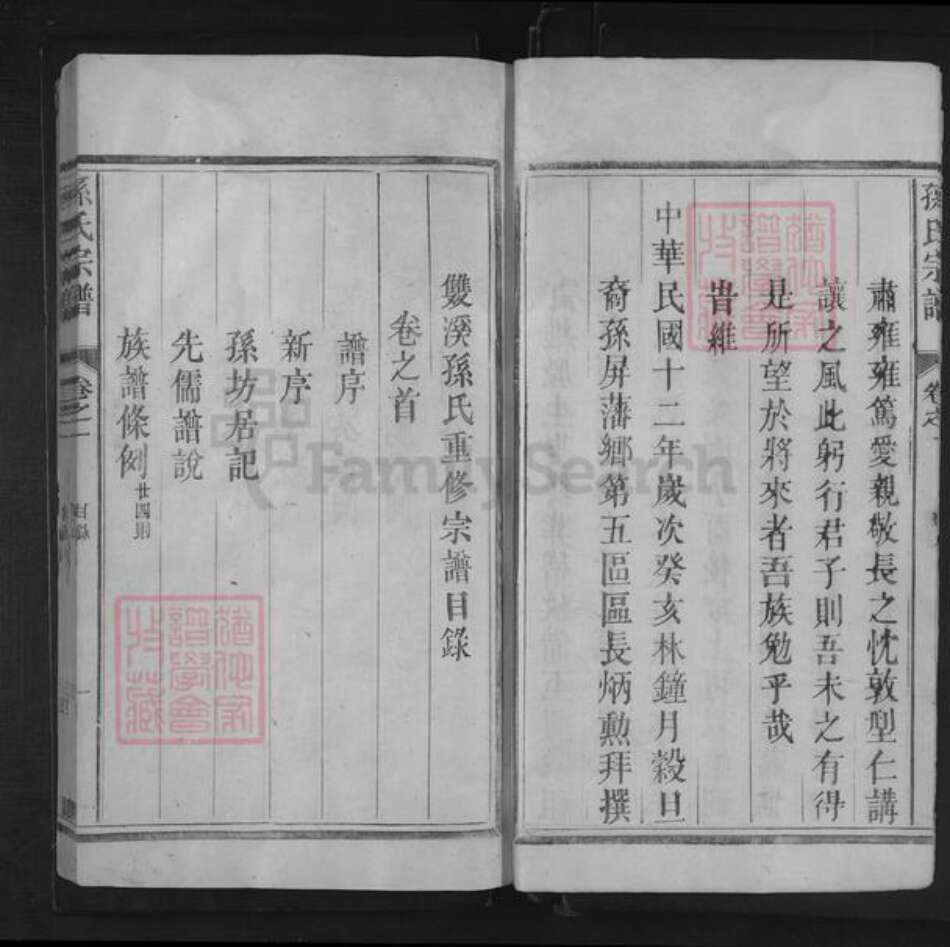 孫氏宗譜
肅雍雍篤愛親敬長之忱敦型仁講
讓之風此躬行君子則吾未之有得
是所望於將來者吾族勉乎哉
旹維
中華民國十二年歲次癸亥林鐘月穀旦
裔孫屏藩鄉第五區區長炳勳拜撰
雙溪孫氏重修宗譜目錄
卷之首
譜序
新序
孫坊居記
先儒譜說
族譜條例廿四則
孫氏宗譜
卷之一
目錄
FamilySearch